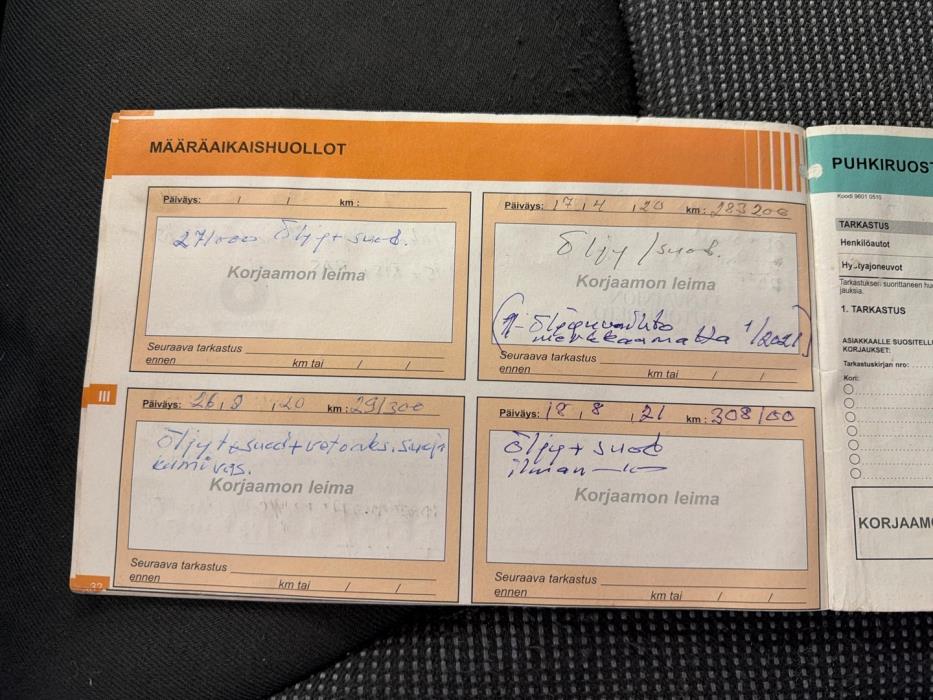 MÄÄRÄAIKAISHUOLLOT
Päiväys: / / km:
271000 Öljy+ suod.
Korjaamon leima
Seuraava tarkastus
ennen km tai / /
Päiväys: 17 , 4 , 20 km: 283200
Öljy/suod.
Korjaamon leima
Öljynvaihto
merkkaamatta 1/2021
Seuraava tarkastus
ennen km tai / /
III
Päiväys: 26, 9 , 20 km: 291300
Öljy+suod+vetonks.suoja
kumi vas.
Korjaamon leima
Seuraava tarkastus
ennen km tai / /
Päiväys: 18 , 8 , 21 km: 308100
Öljy+ suod
ilman
Korjaamon leima
Seuraava tarkastus
ennen km tai / /
32
PUHKIRUOST
Koodi 9601 0510
TARKASTUS
Henkilöautot
Hyötyajoneuvot
Tarkastuksen suorittaneen hu
jauksia.
1. TARKASTUS
ASIAKKAALLE SUOSITELLU
KORJAUKSET:
Tarkastuskirjan nro:
Kori:
KORJAAMO